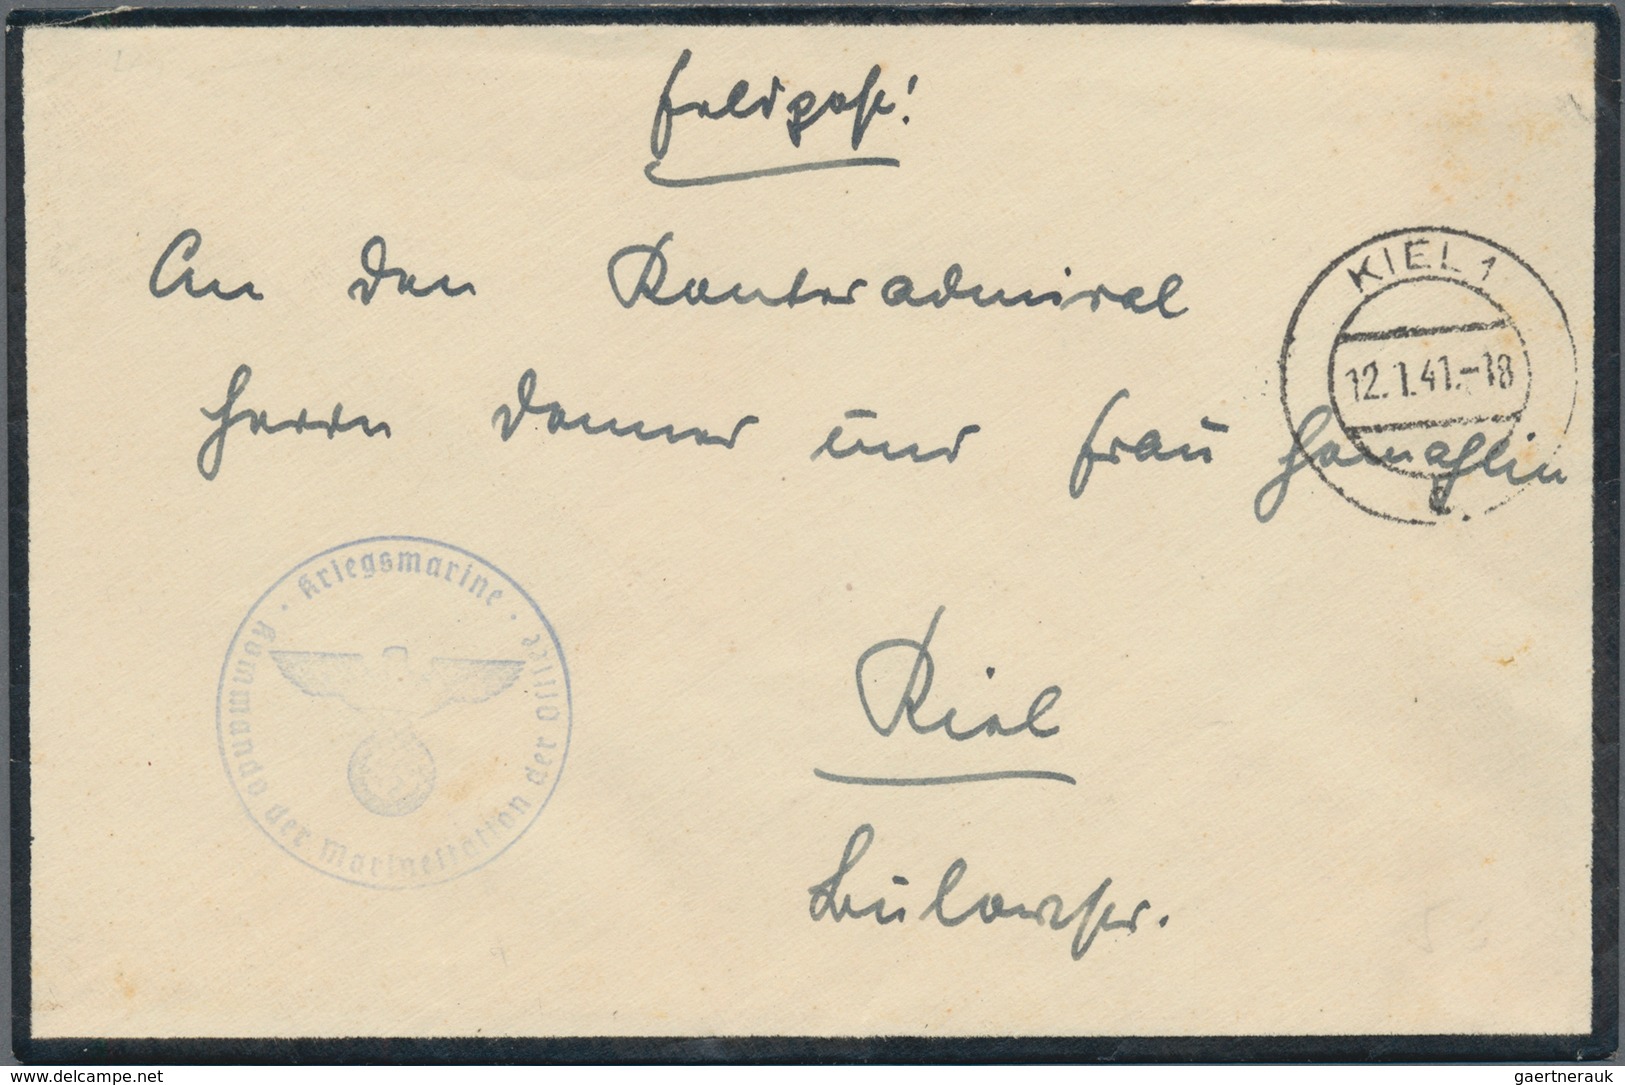 Feldpost!
An den Konteradmiral
KIEL 1
12.1.41.-18
Herrn Danner und Frau Gemahlin
Kriegsmarine · Kommando der Marinestation der Ostsee ·
Kiel
Bülowstr.
www.delcampe.net
gaertnerauk